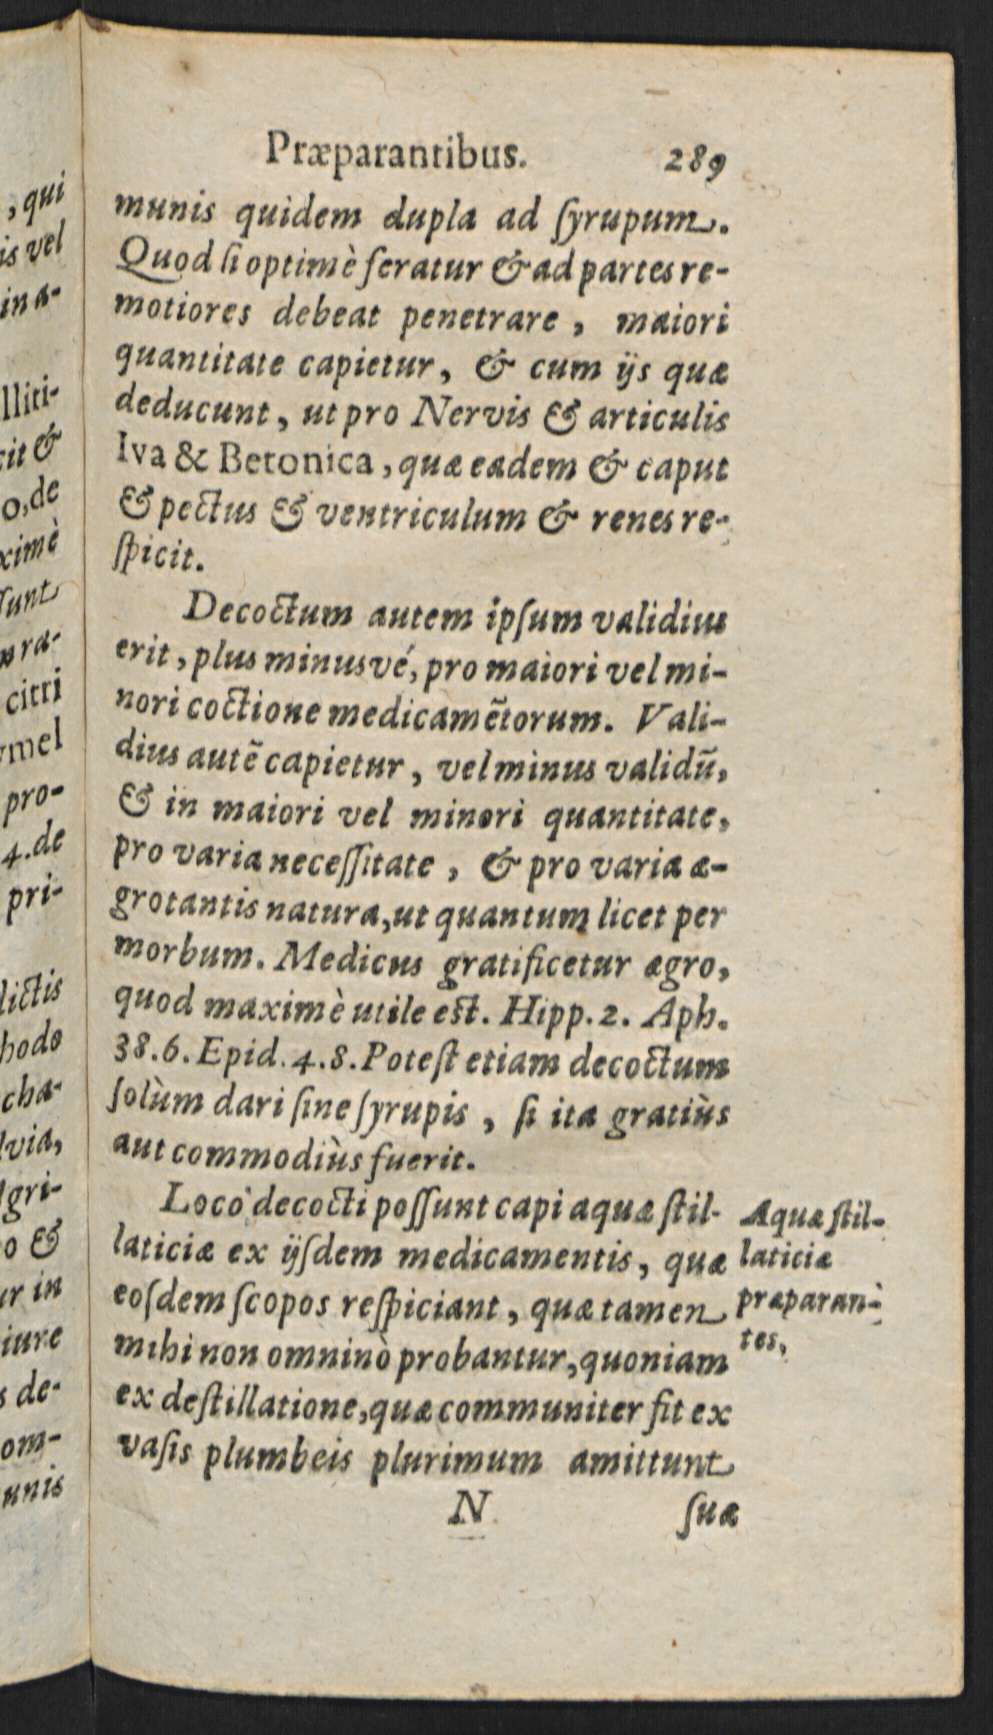 Præparantibus. 289
munis quidem dupla ad ſyrupum.
Quod ſi optimè feratur & ad partes re-
motiores debeat penetrare, maiori
quantitate capietur, & cum ijs quæ
deducunt, ut pro Nervis & articulis
Iva & Betonica, quæ eadem & caput
& pectus & ventriculum & renes re-
ſpicit.
Decoctum autem ipſum validius
erit, plus minusvé, pro maiori vel mi-
nori coctione medicamẽtorum. Vali-
dius autẽ capietur, vel minus validũ,
& in maiori vel minori quantitate,
pro varia neceſſitate, & pro varia æ-
grotantis natura, ut quantum licet per
morbum. Medicus gratificetur ægro,
quod maximè utile eſt. Hipp. 2. Aph.
38. 6. Epid. 4. 8. Poteſt etiam decoctum
ſolùm dari ſine ſyrupis, ſi ita gratiùs
aut commodiùs fuerit.
Locò decocti poſſunt capi aquæ ſtil-
laticiæ ex ijſdem medicamentis, quæ
eoſdem ſcopos reſpiciant, quæ tamen
mihi non omninò probantur, quoniam
ex deſtillatione, quæ communiter fit ex
vaſis plumbeis plurimum amittunt
N ſuæ
Aquæ ſtil-
laticiæ
præparan-
tes.
, qui
is vel
in a-
lliti-
cit &
o, de
ximè
ſunt
ra-
citri
ymel
pro-
4. de
pri-
dictis
hodo
cha-
lvia,
Agri-
o &
ur in
iure
s de-
om-
unis